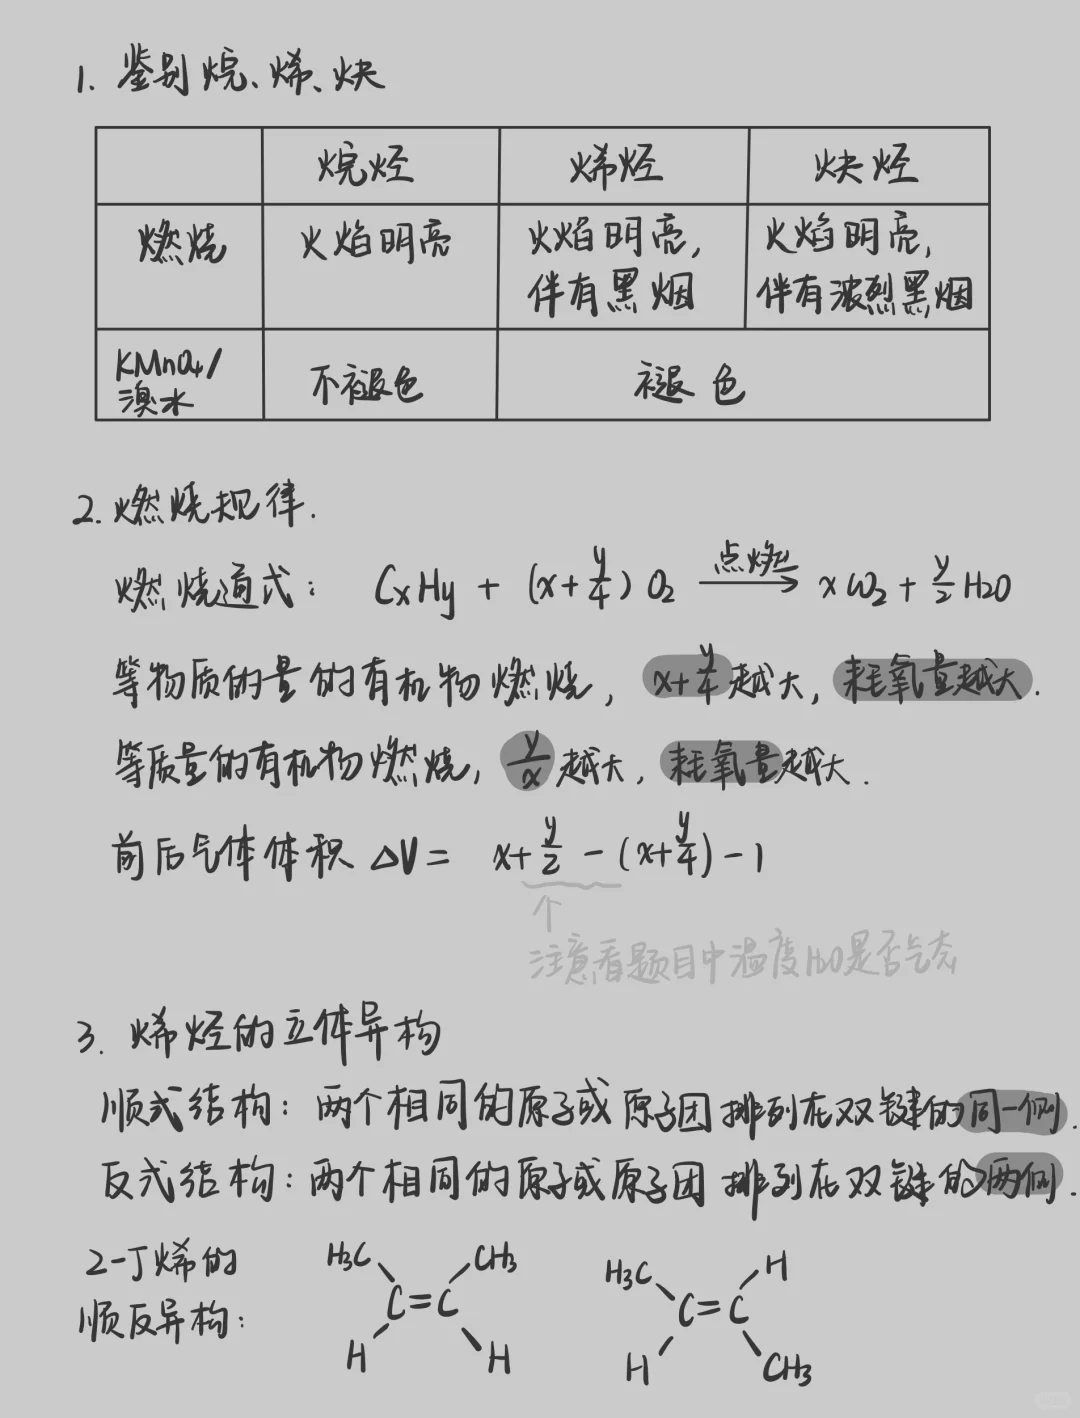 1. 鉴别烷、烯、炔
烷烃 烯烃 炔烃
燃烧 火焰明亮 火焰明亮, 伴有黑烟 火焰明亮, 伴有浓烈黑烟
KMnO4/溴水 不褪色 褪色
2. 燃烧规律.
燃烧通式: CxHy + (x+y/4) O2 —点燃→ xCO2 + y/2 H2O
等物质的量的有机物燃烧, x+y/4越大, 耗氧量越大.
等质量的有机物燃烧, y/x 越大, 耗氧量越大.
前后气体体积 ΔV = x+y/2 - (x+y/4) - 1
↑
注意看题目中温度H2O是否气态
3. 烯烃的立体异构
顺式结构: 两个相同的原子或原子团排列在双键的同一侧.
反式结构: 两个相同的原子或原子团排列在双键的两侧.
2-丁烯的
顺反异构:
H3C CH3 H3C H
C=C C=C
H H H CH3